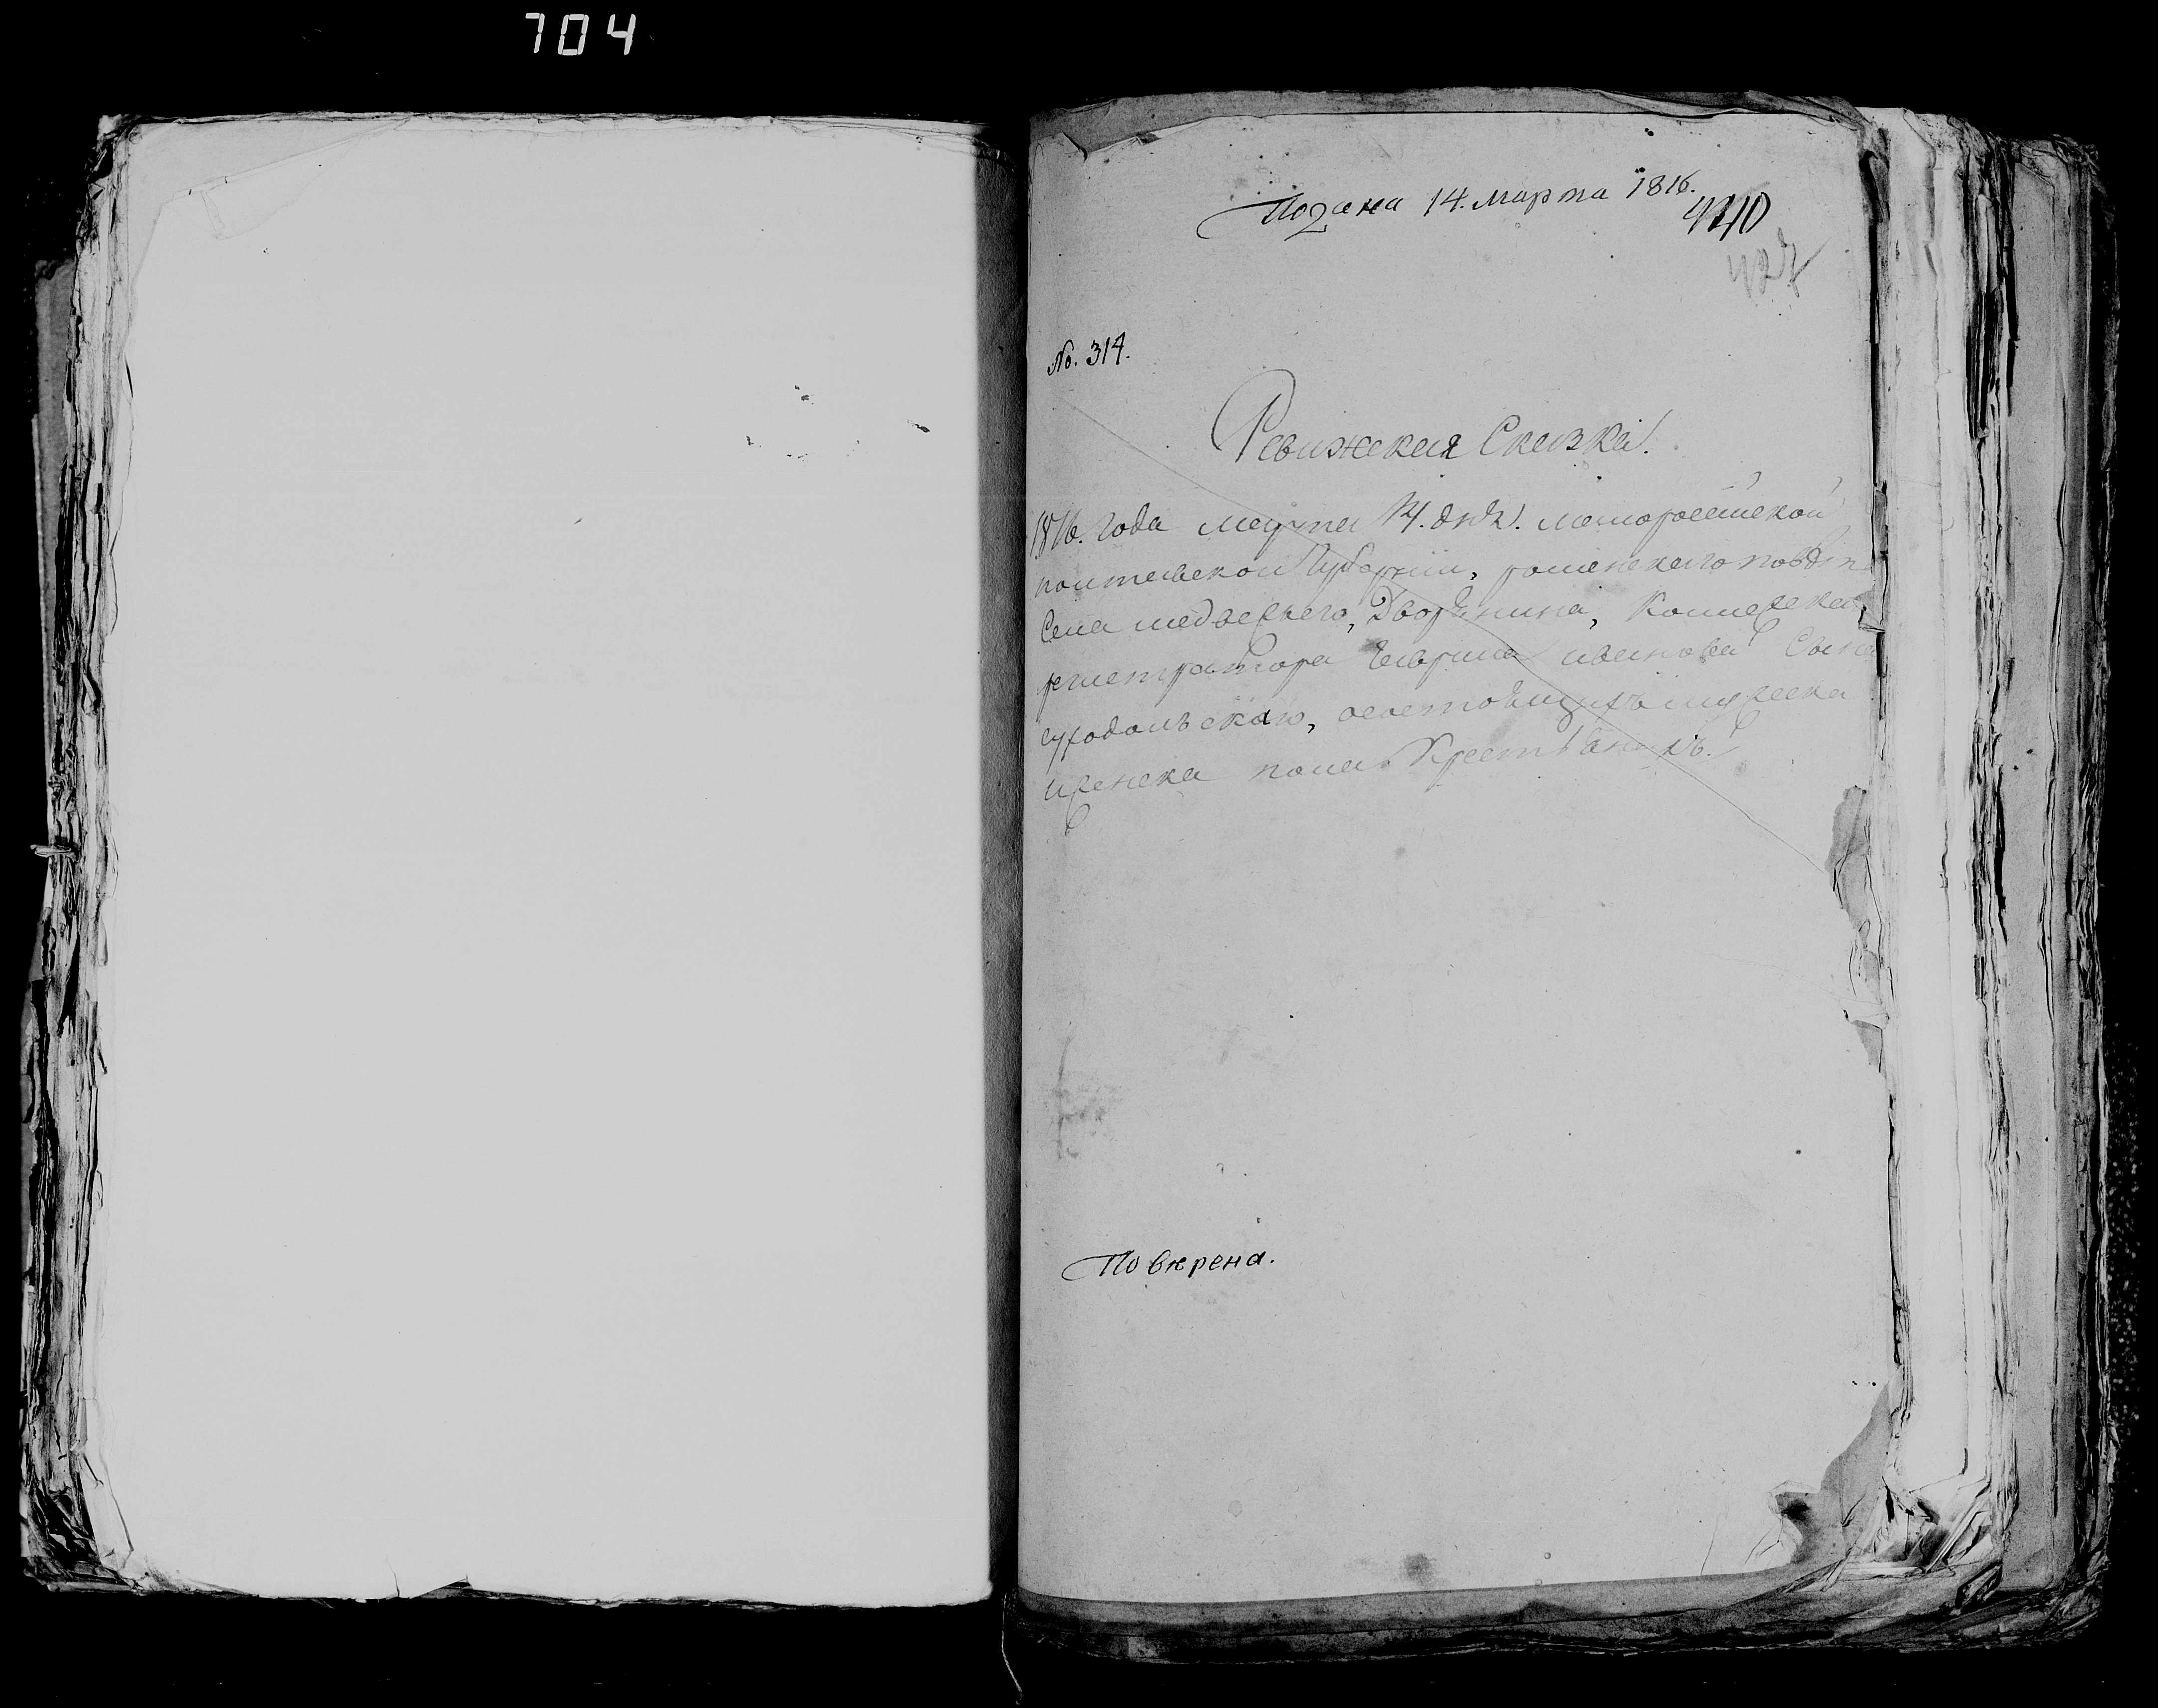 704
Подана 14. марта 1816.
440
427
No. 314.
Ревижская Сказка.
1816. года марта 14. дня. малороссійской
полтавской Губерніи, роменского повѣт
Села медвежего, Дворянина, Коллежска
регистратора Гаврила иванова Сына
суходольскаго, о состоящихъ мужеска
иженска пола Крестьянехъ.
Повѣрена.